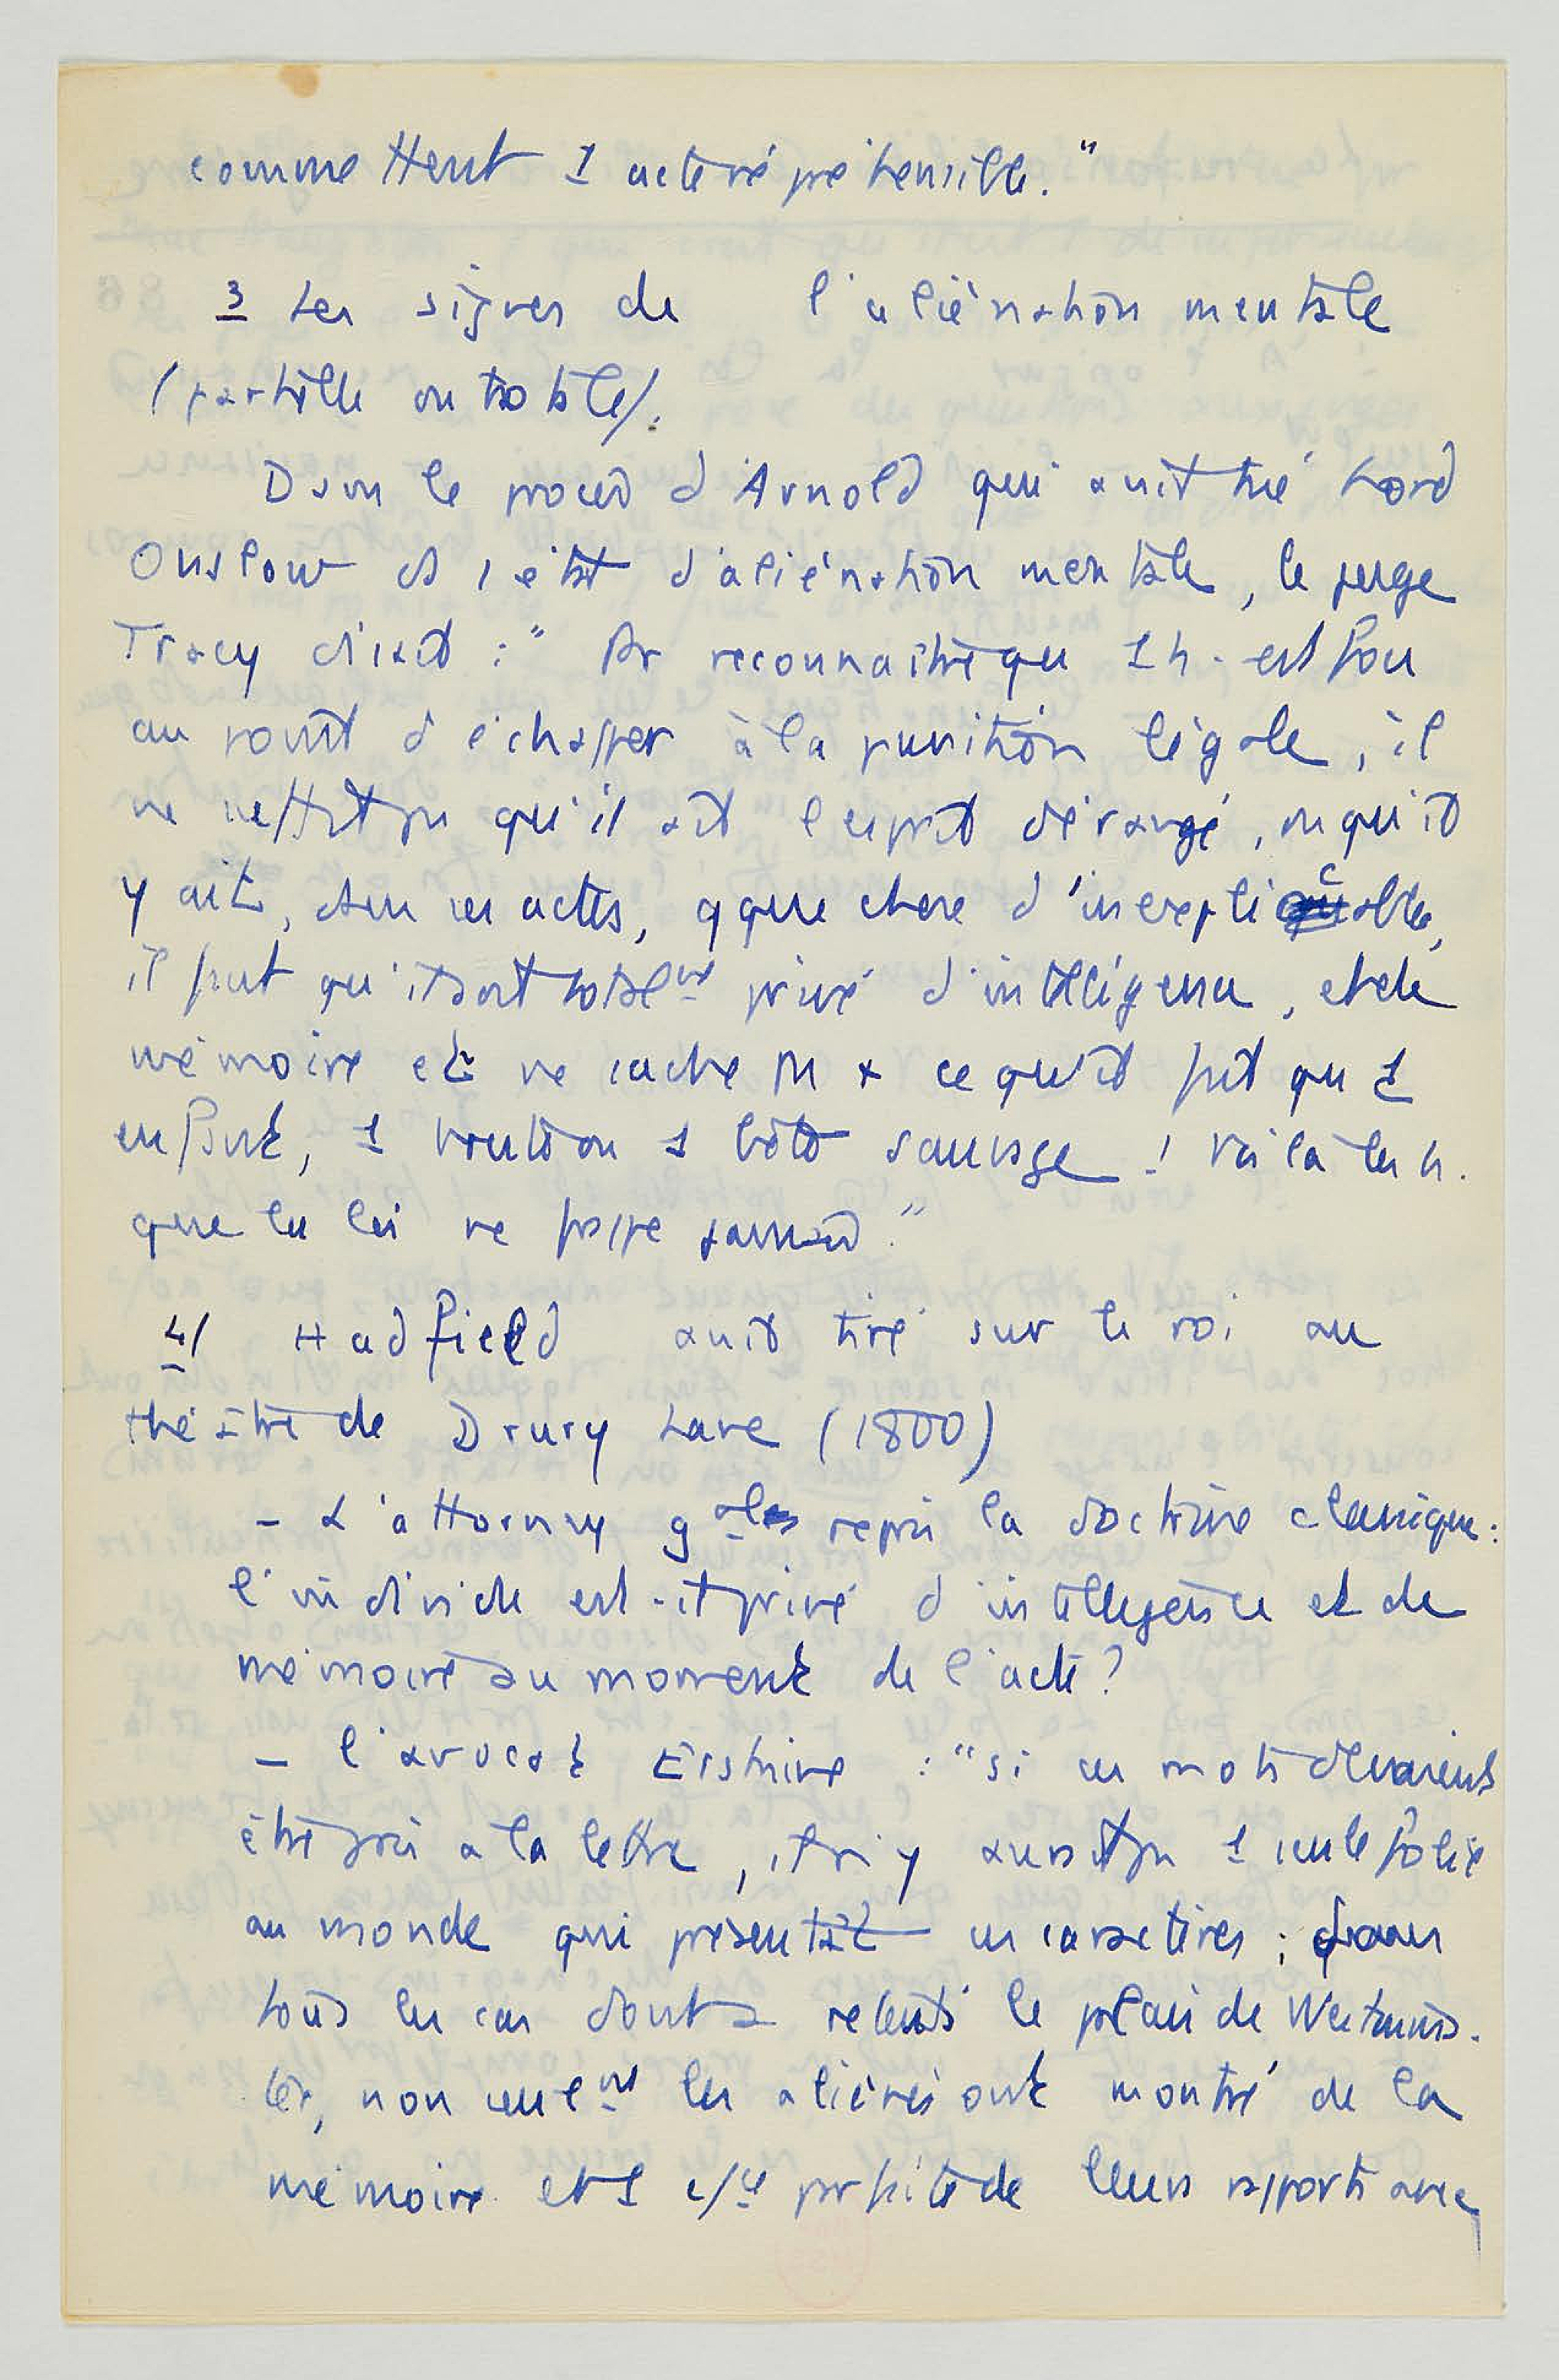 commettent 1 acte répréhensible."
3 Les signes de l'aliénation mentale
(partielle ou totale).
Dans le procès d'Arnold qui avait tué Lord
Onslow ds 1 état d'aliénation mentale, le juge
Tracy disait : " Pr reconnaître qu 1 h. est fou
au point d'échapper à la punition légale, il
ne suffit pas qu'il ait l'esprit dérangé, ou qu'il
y ait, dans ses actes, qque chose d'inexplicable,
il faut qu'il soit totalemt privé d'intelligence, et de
mémoire et ne sache pas + ce qu'il fait qu 1
enfant, 1 brute ou 1 bête sauvage ! Voilà les h.
que la loi ne frappe jamais."
4/ Hadfield avait tiré sur le roi au
théâtre de Drury Lane (1800)
- L'attorney gal reprit la doctrine classique :
l'individu est-il privé d'intelligence et de
mémoire au moment de l'acte ?
- l'avocat Erskine : "si ces mots devaient
être pris à la lettre, il n'y aurait pas 1 seule folie
au monde qui présentât ces caractères ; dans
tous les cas dont a retenti le palais de Westmins-
ter, non seulemt les aliénés ont montré de la
mémoire et 1 csce parfaite de leurs rapports avec